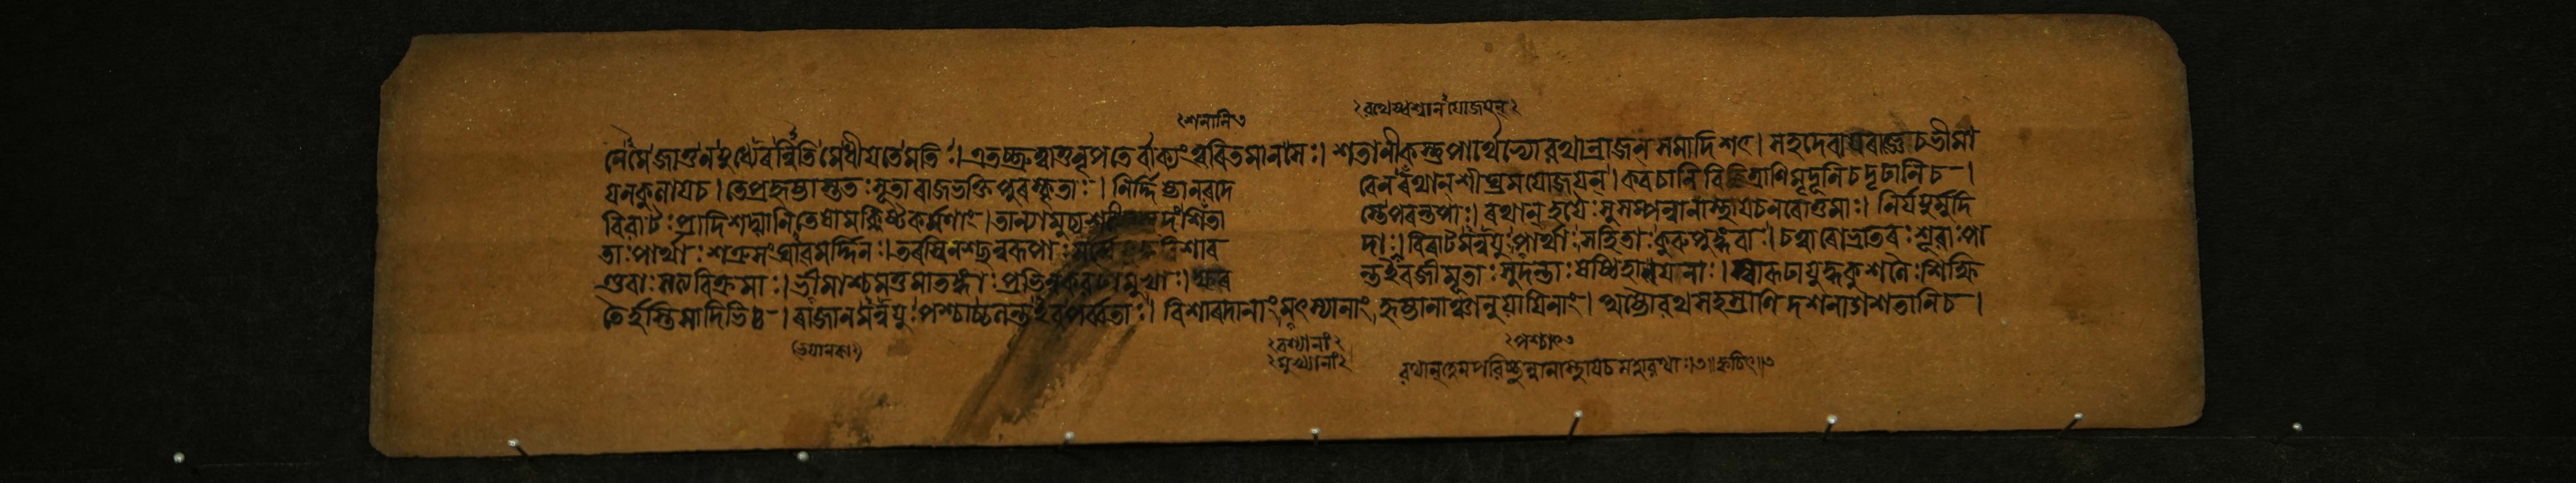 শেনানি
ৰথেষ্বশ্বান যোজযন্
নৈতে জাতু ন যুধ্যেৰন্নিতি মে ধীযতে মতিঃ। এতচ্ছ্রুত্বা তু নৃপতের্বাক্যং ত্বৰিতমানসঃ। শতানীকস্তু পার্থেভ্যো ৰথান্ৰাজন্ সমাদিশৎ। সহদেবায ৰাজ্ঞে চ ভীমা
য নকুলায চ। তে প্রহৃষ্টাস্ততঃ সূতা ৰাজভক্তিপুৰস্কৃতাঃ। নির্দ্দিষ্টান্নৰদে বেন ৰথান্ শীঘ্রমযোজযন্। কবচানি বিচিত্রাণি মৃদূনি চ দৃঢানি চ।
বিৰাটঃ প্রাদিশদ্যানি তেষামক্লিষ্টকর্ম্মণাং। তান্যামুচ্য দংশিতা স্তে পৰন্তপাঃ। ৰথান্ হযৈঃ সুসম্পন্নানাস্থায চ নৰোত্তমাঃ। নির্যযুর্মুদি
তাঃ পার্থাঃ শত্রুসংঘাবমর্দ্দিনঃ। তৰস্বিনশ্ছন্নৰূপাঃ বিশাৰ দাঃ। বিৰাটমন্বযুঃ পার্থাঃ সহিতাঃ কুৰুপুঙ্গবাঃ। চত্বাৰো ভ্রাতৰঃ শূৰাঃ পা
ণ্ডবাঃ সত্যবিক্রমাঃ। ভীমাশ্চ মত্তমাতঙ্গাঃ প্রভিন্নকৰটামুখাঃ। ক্ষৰ ন্ত ইব জীমূতাঃ সুদন্তাঃ ষষ্টিহাযনাঃ। স্বাৰূঢা যুদ্ধকুশলৈঃ শিক্ষি
তৈর্হস্তিসাদিভিঃ। ৰাজানমন্বযুঃ পশ্চাচ্চলন্ত ইব পর্ব্বতাঃ। বিশাৰদানাং মৎস্যানাং হৃষ্টানাঞ্চানুযাযিনাং। অষ্টৌ ৰথসহস্রাণি দশ নাগশতানি চ।
ভযানকাঃ
বশ্যানাং
মুখ্যানাং
পশ্চাৎ
ৰথান্ হেমপৰিচ্ছন্নানাস্থায চ মহাৰথাঃ॥ ক্বচিৎ॥